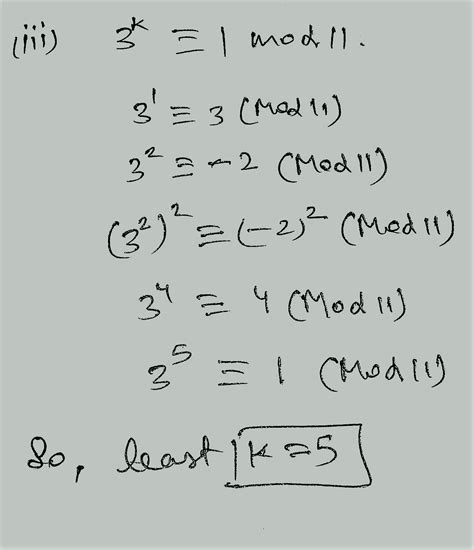 (iii) 3^k ≡ 1 mod 11.
3^1 ≡ 3 (Mod 11)
3^2 ≡ -2 (Mod 11)
(3^2)^2 ≡ (-2)^2 (Mod 11)
3^4 ≡ 4 (Mod 11)
3^5 ≡ 1 (Mod 11)
So, least k=5